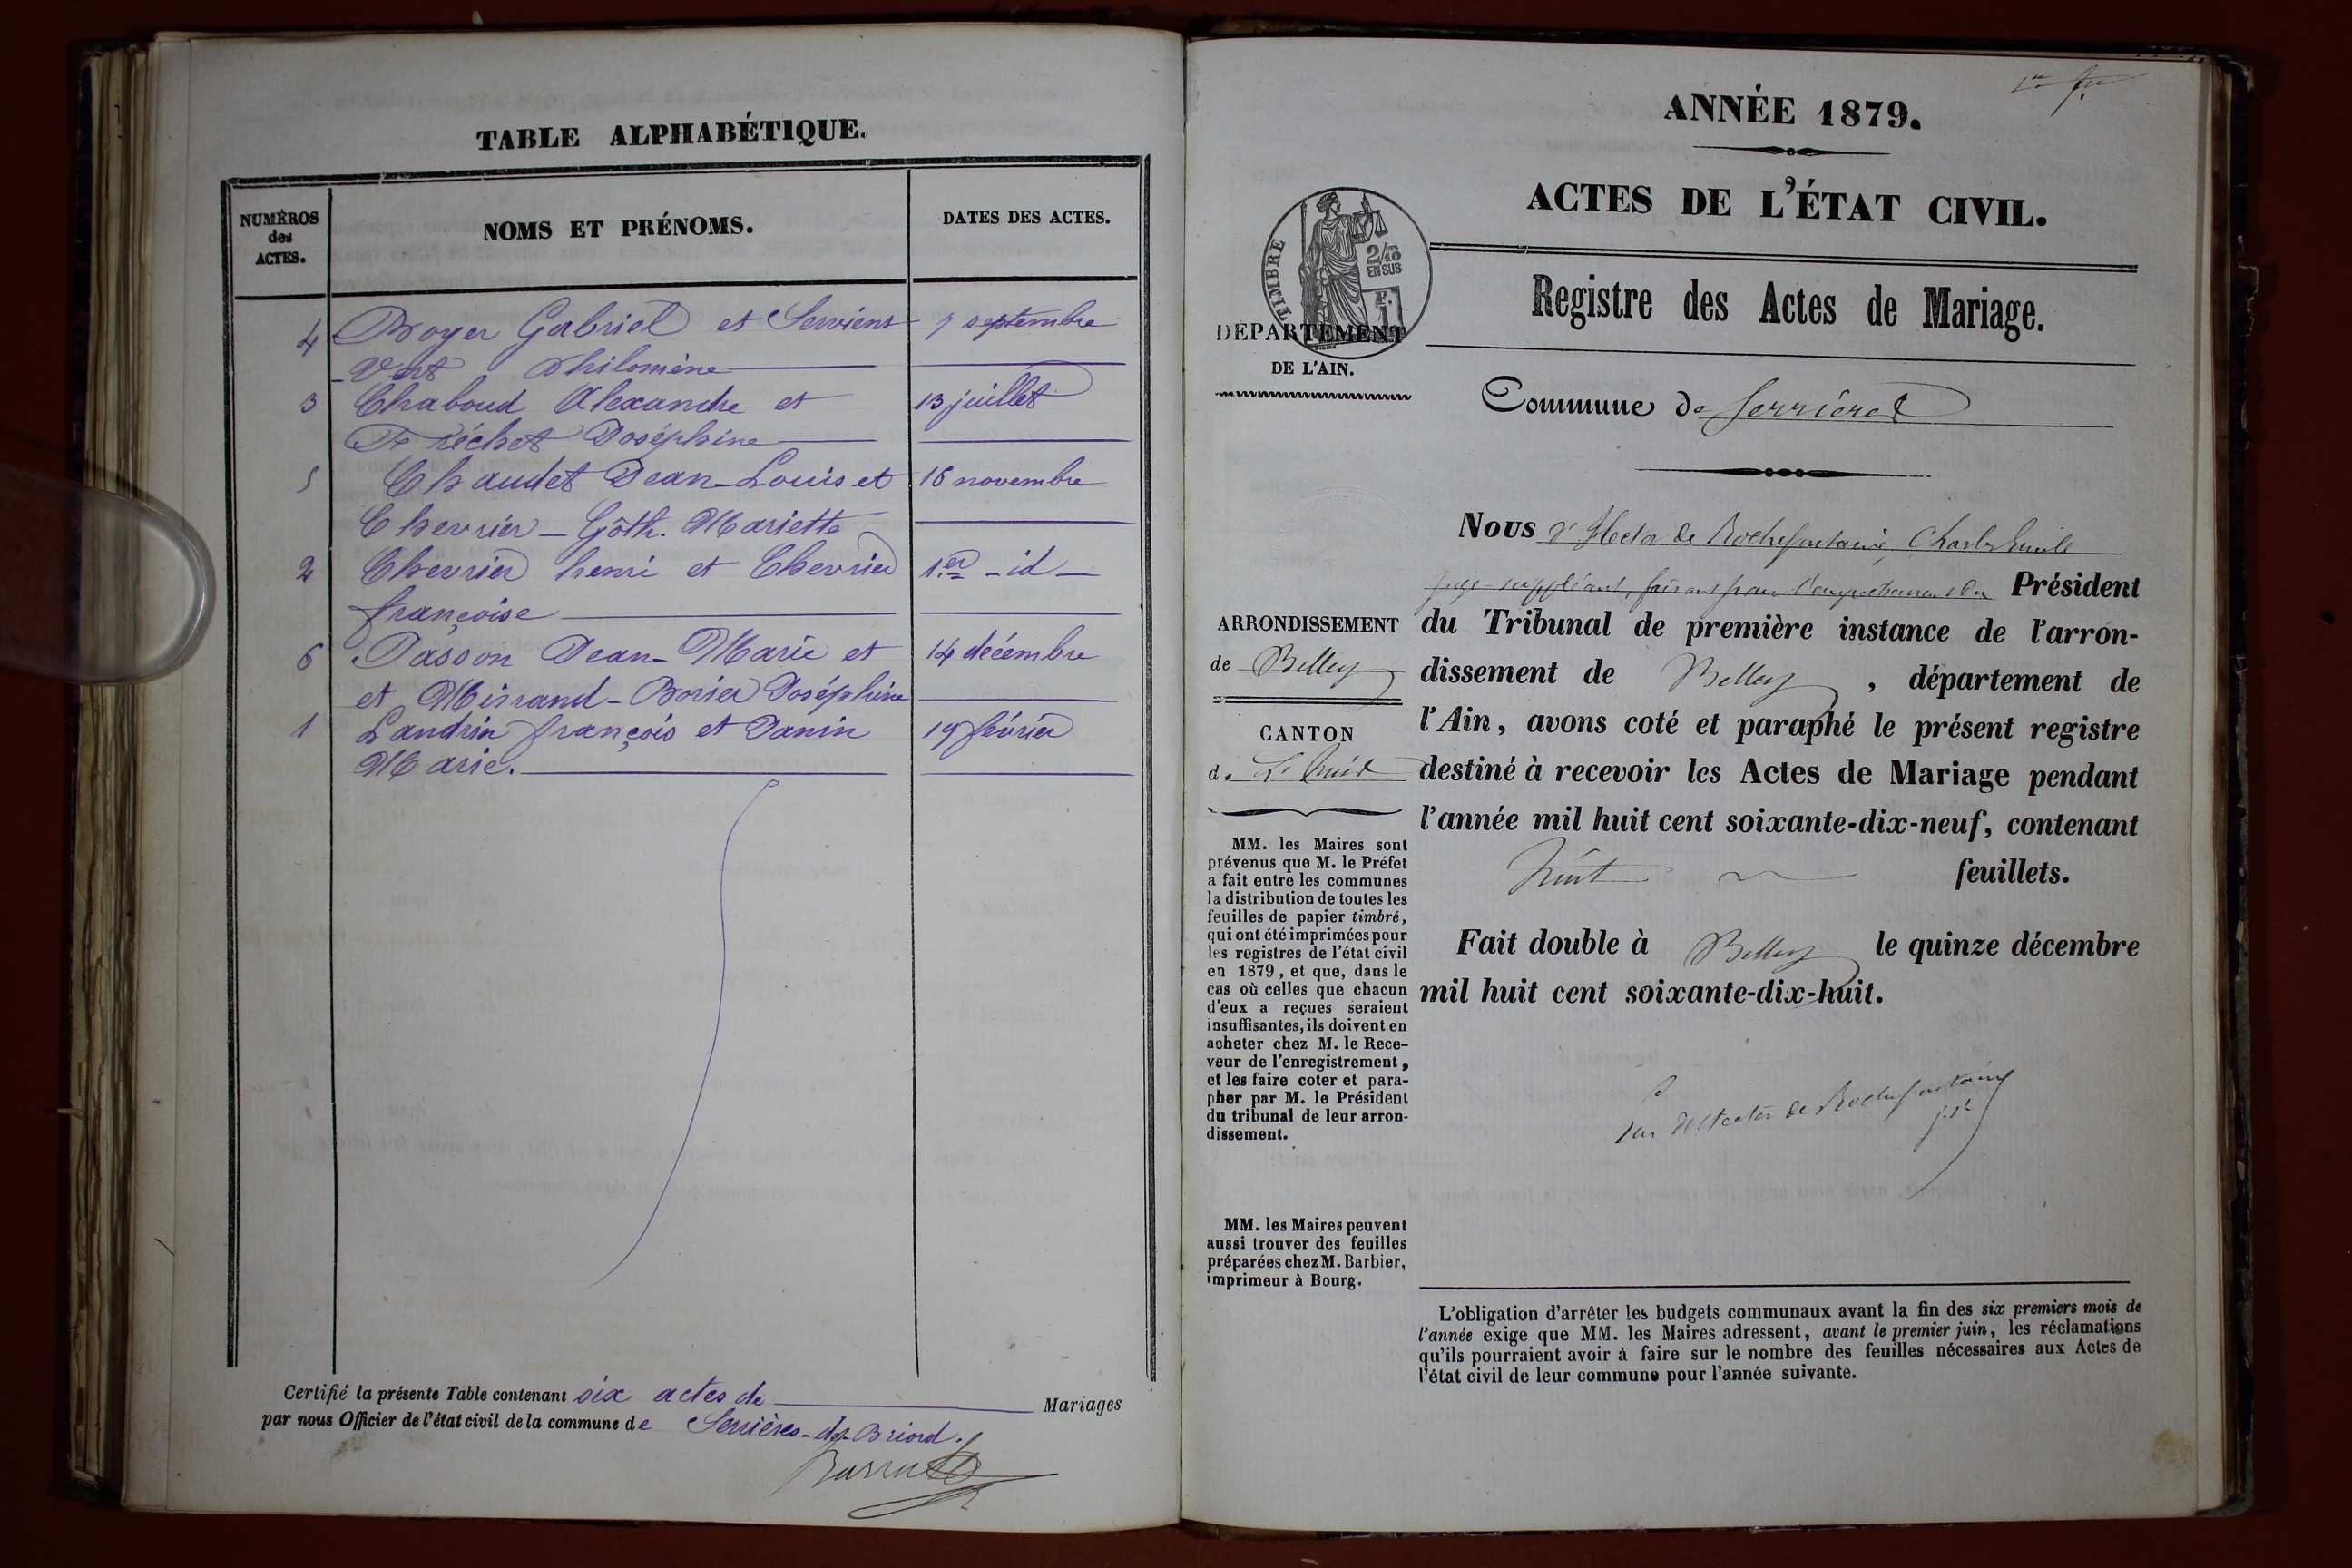 TABLE ALPHABÉTIQUE.
NUMÉROS
des
ACTES.
NOMS ET PRÉNOMS.
DATES DES ACTES.
4 Boyer Gabriel et Serviens 7 septembre
Vert Philomène
3 Chaboud Alexandre et 13 juillet
Tréchet Joséphine
5 Chaudet Jean-Louis et 16 novembre
Chevrier-Gôth. Mariette
2 Chevrier henri et Chevrier 1er -id-
françoise
6 Jasson Jean-Marie et 14 décembre
et Mirrand-Borier Joséphine
1 Landrin françois et Janin 19 février
Marie.
Certifié la présente Table contenant six actes de Mariages
par nous Officier de l'état civil de la commune de Serrières-de-Briord.
ANNÉE 1879.
ACTES DE L'ÉTAT CIVIL.
TIMBRE
2/10
EN SUS
F.
1
DÉPARTEMENT
DE L'AIN.
Registre des Actes de Mariage.
Commune de Serrières
ARRONDISSEMENT
de Belley
CANTON
de L'huis
MM. les Maires sont
prévenus que M. le Préfet
a fait entre les communes
la distribution de toutes les
feuilles de papier timbré,
qui ont été imprimées pour
les registres de l'état civil
en 1879, et que, dans le
cas où celles que chacun
d'eux a reçues seraient
insuffisantes, ils doivent en
acheter chez M. le Rece-
veur de l'enregistrement,
et les faire coter et para-
pher par M. le Président
du tribunal de leur arron-
dissement.
MM. les Maires peuvent
aussi trouver des feuilles
préparées chez M. Barbier,
imprimeur à Bourg.
Nous d'Hector de Rochefontaine, Charles Emile
juge suppléant, faisant pour l'empêchement du Président
du Tribunal de première instance de l'arron-
dissement de Belley, département de
l'Ain, avons coté et paraphé le présent registre
destiné à recevoir les Actes de Mariage pendant
l'année mil huit cent soixante-dix-neuf, contenant
huit feuillets.
Fait double à Belley le quinze décembre
mil huit cent soixante-dix-huit.
d'Hector de Rochefontaine
L'obligation d'arrêter les budgets communaux avant la fin des six premiers mois de
l'année exige que MM. les Maires adressent, avant le premier juin, les réclamations
qu'ils pourraient avoir à faire sur le nombre des feuilles nécessaires aux Actes de
l'état civil de leur commune pour l'année suivante.